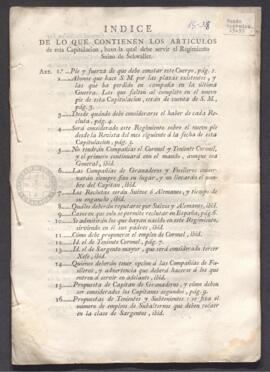 15-28
Fondo
INDICE
DE LO QUE CONTIENEN LOS ARTICULOS
de esta Capitulacion, baxo la qual debe servir el Regimiento
Suizo de Schwaller.
ART. 1.º Pie y fuerza de que debe constar este Cuerpo, pág. 1.
2 Abono que hace S. M. por las plazas existentes, y
las que ha perdido en campaña en la última
Guerra. Las que falten al completo en el nuevo
pie de esta Capitulacion, serán de cuenta de S. M.,
pág. 3.
3 Desde quándo debe considerarse el haber de cada Re-
cluta, pág. 4.
4 Será considerado este Regimiento sobre el nuevo pie
desde la Revista del mes siguiente á la fecha de esta
Capitulacion, pág. 5.
5 No tendrán Compañías el Coronel y Teniente Coronel,
y el primero continuará con el mando, aunque sea
General, ibid.
6 Las Compañías de Granaderos y Fusileros conser-
varán siempre fixo su lugar, y no llevarán el nom-
bre del Capitan, ibid.
7 Los Reclutas serán Suizos ó Alemanes, y tiempo de
su enganche, ibid.
8 Quáles deberán reputarse por Suizos y Alemanes, ibid.
9 Casos en que solo se permite reclutar en España, pág. 6.
10 Se admitirán los que hayan nacido en este Regimiento,
sirviendo en él sus padres, ibid.
11 Cómo debe proponerse el empleo de Coronel, ibid.
12 Id. el de Teniente Coronel, pág. 7.
13 Id. el de Sargento mayor, que será considerado tercer
Xefe, ibid.
14 Quienes deberán tener opcion á las Compañías de Fu-
sileros, y advertencia que deberá hacerse á los que
entren á servir en adelante, ibid.
15 Propuesta de Capitan de Granaderos, y cómo deben
ser considerados los Capitanes segundos, pág. 9.
16 Propuestas de Tenientes y Subtenientes: se fixa el
número de empleos de Subalternos que deben recaer
en la clase de Sargentos, ibid.